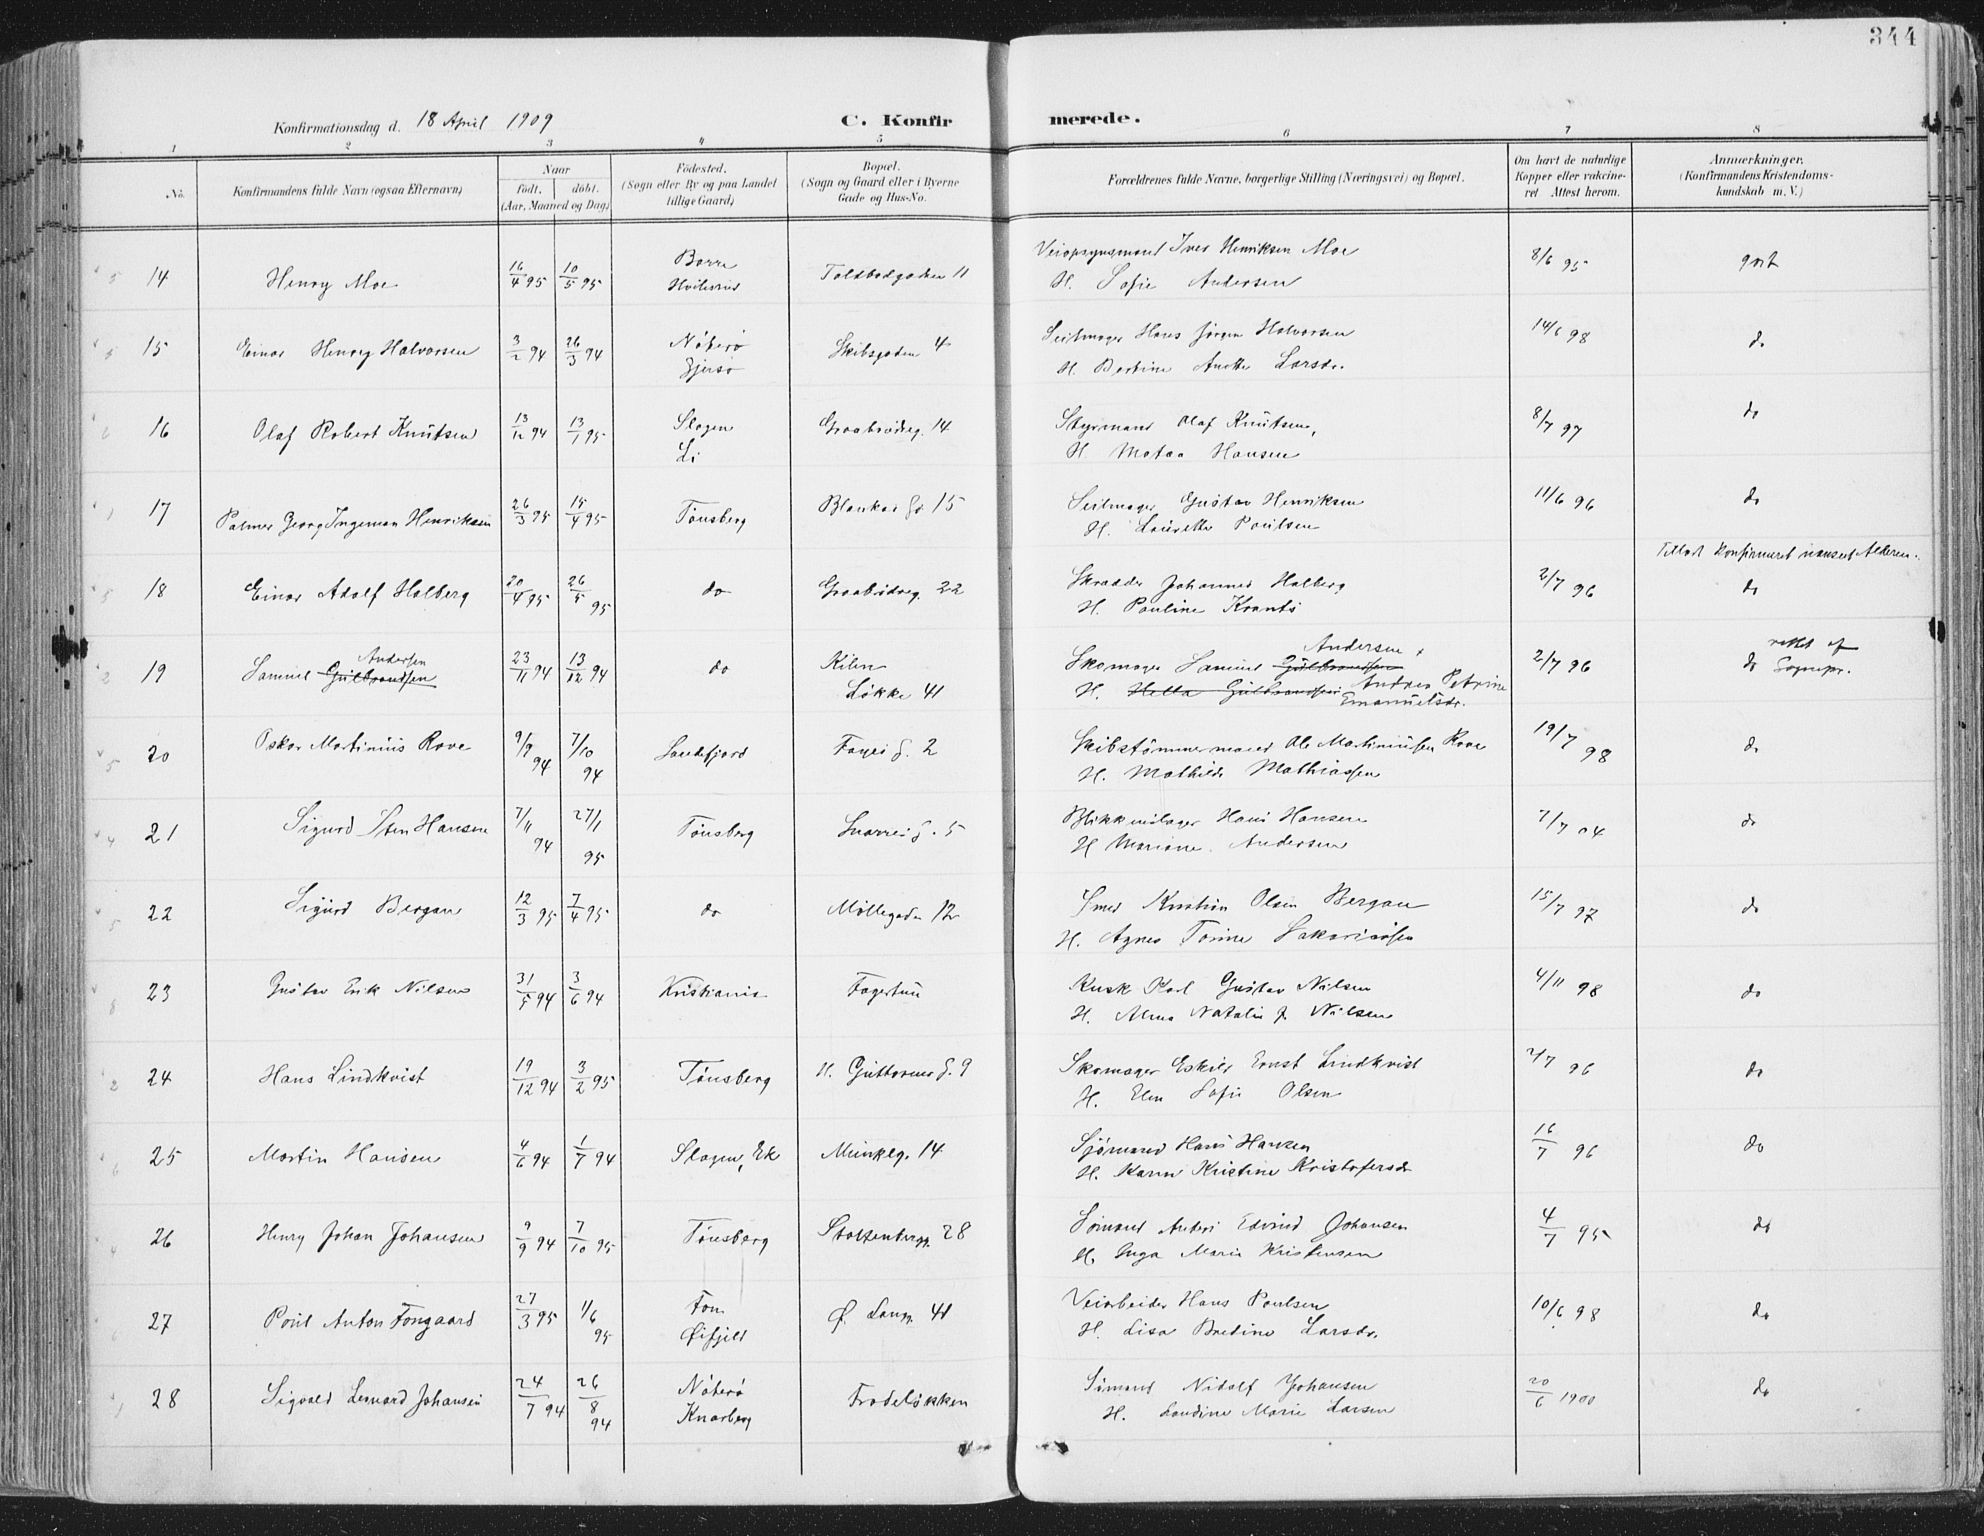 344
Konfirmationsdag d. 18 April 1909
C. Konfirmerede.
1 2 3 4 5 6 7 8
No.
Konfirmandens fulde Navn (ogsaa Efternavn)
Naar
födt. döbt.
(Aar, Maaned og Dag)
Födested.
(Sogn eller By og paa Landet
tillige Gaard)
Bopæl.
(Sogn og Gaard eller i Byerne
Gade og Hus-No.
Forældrenes fulde Navne, borgerlige Stilling (Næringsvei) og Bopæl.
Om havt de naturlige
Kopper eller vakcine-
ret Attest herom.
Anmærkninger.
(Konfirmandens Kristendoms-
kundskab m. V.)
14 Henry Moe 16/4 95 10/5 95 Borre Toldbodgaden 11 Veiopsynsmand Iver Henriksen Moe 8/6 95 godt
H. Sofie Andersen
15 Einar Henry Halvorsen 3/2 94 26/3 94 Nøterø Skibsgaden 4 Seilmager Hans Jørgen Halvorsen 14/6 98 do
Gjersø H. Bertine Anette Larsdr.
16 Olaf Robert Knutsen 13/12 94 13/1 95 Slagen Graabrødreg. 14 Styrmand Olaf Knutsen, 8/7 97 do
Li H. Matea Hansen
17 Palmer Georg Ingeman Henriksen 26/3 95 15/4 95 Tønsberg Blankas G. 15 Seilmager Gustav Henriksen 11/6 96 do
H. Laurette Poulsen
Tillad. konfirmeret uanseet Alderen.
18 Einar Adolf Holberg 20/4 95 26/5 95 do Graabrødreg. 22 Skrædder Johannes Holberg 2/7 96 do
H. Pauline Krants
19 Samuel Gulbrandsen Andersen 23/11 94 13/12 94 do Kilen Skomager Samuel Gulbrandsen Andersen 2/7 96 do rettet af Sognepr.
Løkke 41 H. Hella Gulbrandsen Andrea Petrine
Emanuelsdr.
20 Oskar Martinius Rove 9/9 94 7/10 94 Sandefjord Fayes G. 2 Skibstømmermand Ole Martiniussen Rove 19/7 98 do
H. Mathilde Mathiassen
21 Sigurd Sten Hansen 7/11 94 27/1 95 Tønsberg Snorres G. 5 Blikkenslager Hans Hansen 7/7 04 do
H Mariane Andersen
22 Sigurd Bergan 12/3 95 7/4 95 do Møllegaden 12 Smed Kristian Olsen Bergan 15/7 97 do
H. Agnes Torine Sakariassen
23 Gustav Erik Nilsen 31/5 94 3/6 94 Kristiania Fagertun Kusk Karl Gustav Nilsen 4/11 98 do
H. Alma Natalie J. Nilsen
24 Hans Lindkvist 19/12 94 3/2 95 Tønsberg H. Guttorms G. 9 Skomager Eskil Ernst Lindkvist 2/7 96 do
H. Elen Sofie Olsen
25 Martin Hansen 4/6 94 1/7 94 Slagen, Ek Munkeg. 14 Sjømand Hans Hansen 16/7 96 do
H. Karen Kristine Kristofersdr
26 Henry Johan Johansen 9/9 94 7/10 95 Tønsberg Stoltenbergg. 28 Sømand Anders Edvind Johansen 4/7 95 do
H. Inga Marie Kristensen
27 Poul Anton Fongaard 27/3 95 1/6 95 Fon Ø. Langg. 41 Veiarbeider Hans Poulsen 10/6 98 do
Øifjeld H. Lisa Bredine Larsdr.
28 Sigvald Leonard Johansen 24/7 94 26/8 94 Nøterø Frodeløkken Sømand Nidolf Johansen 20/6 1900 do
Knarberg H. Landine Marie Larsen